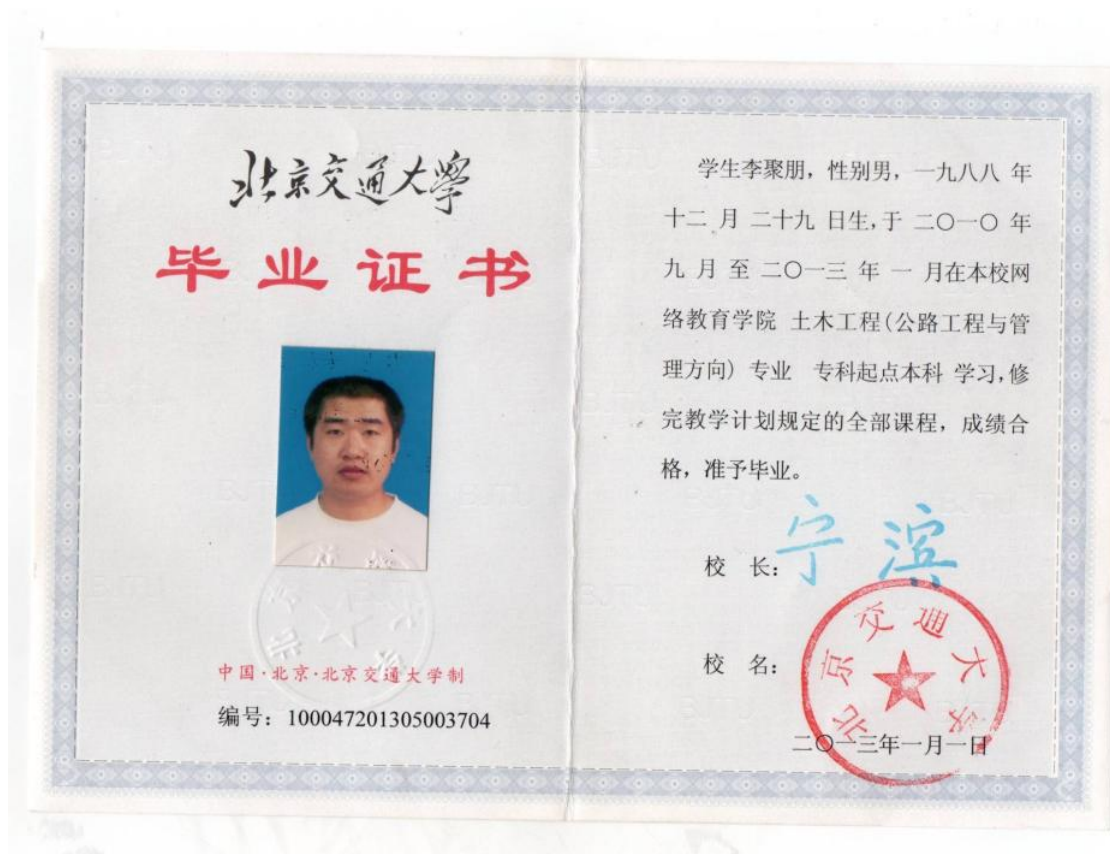 北京交通大学
毕业证书
中国·北京·北京交通大学制
编号：100047201305003704
学生李聚朋，性别男，一九八八 年
十二 月 二十九 日生,于 二〇一〇 年
九 月 至 二〇一三 年 一 月在本校网
络教育学院 土木工程(公路工程与管
理方向) 专业 专科起点本科 学习,修
完教学计划规定的全部课程，成绩合
格，准予毕业。
校 长: 宁滨
校 名:
北京交通大学
二〇一三年一月一日